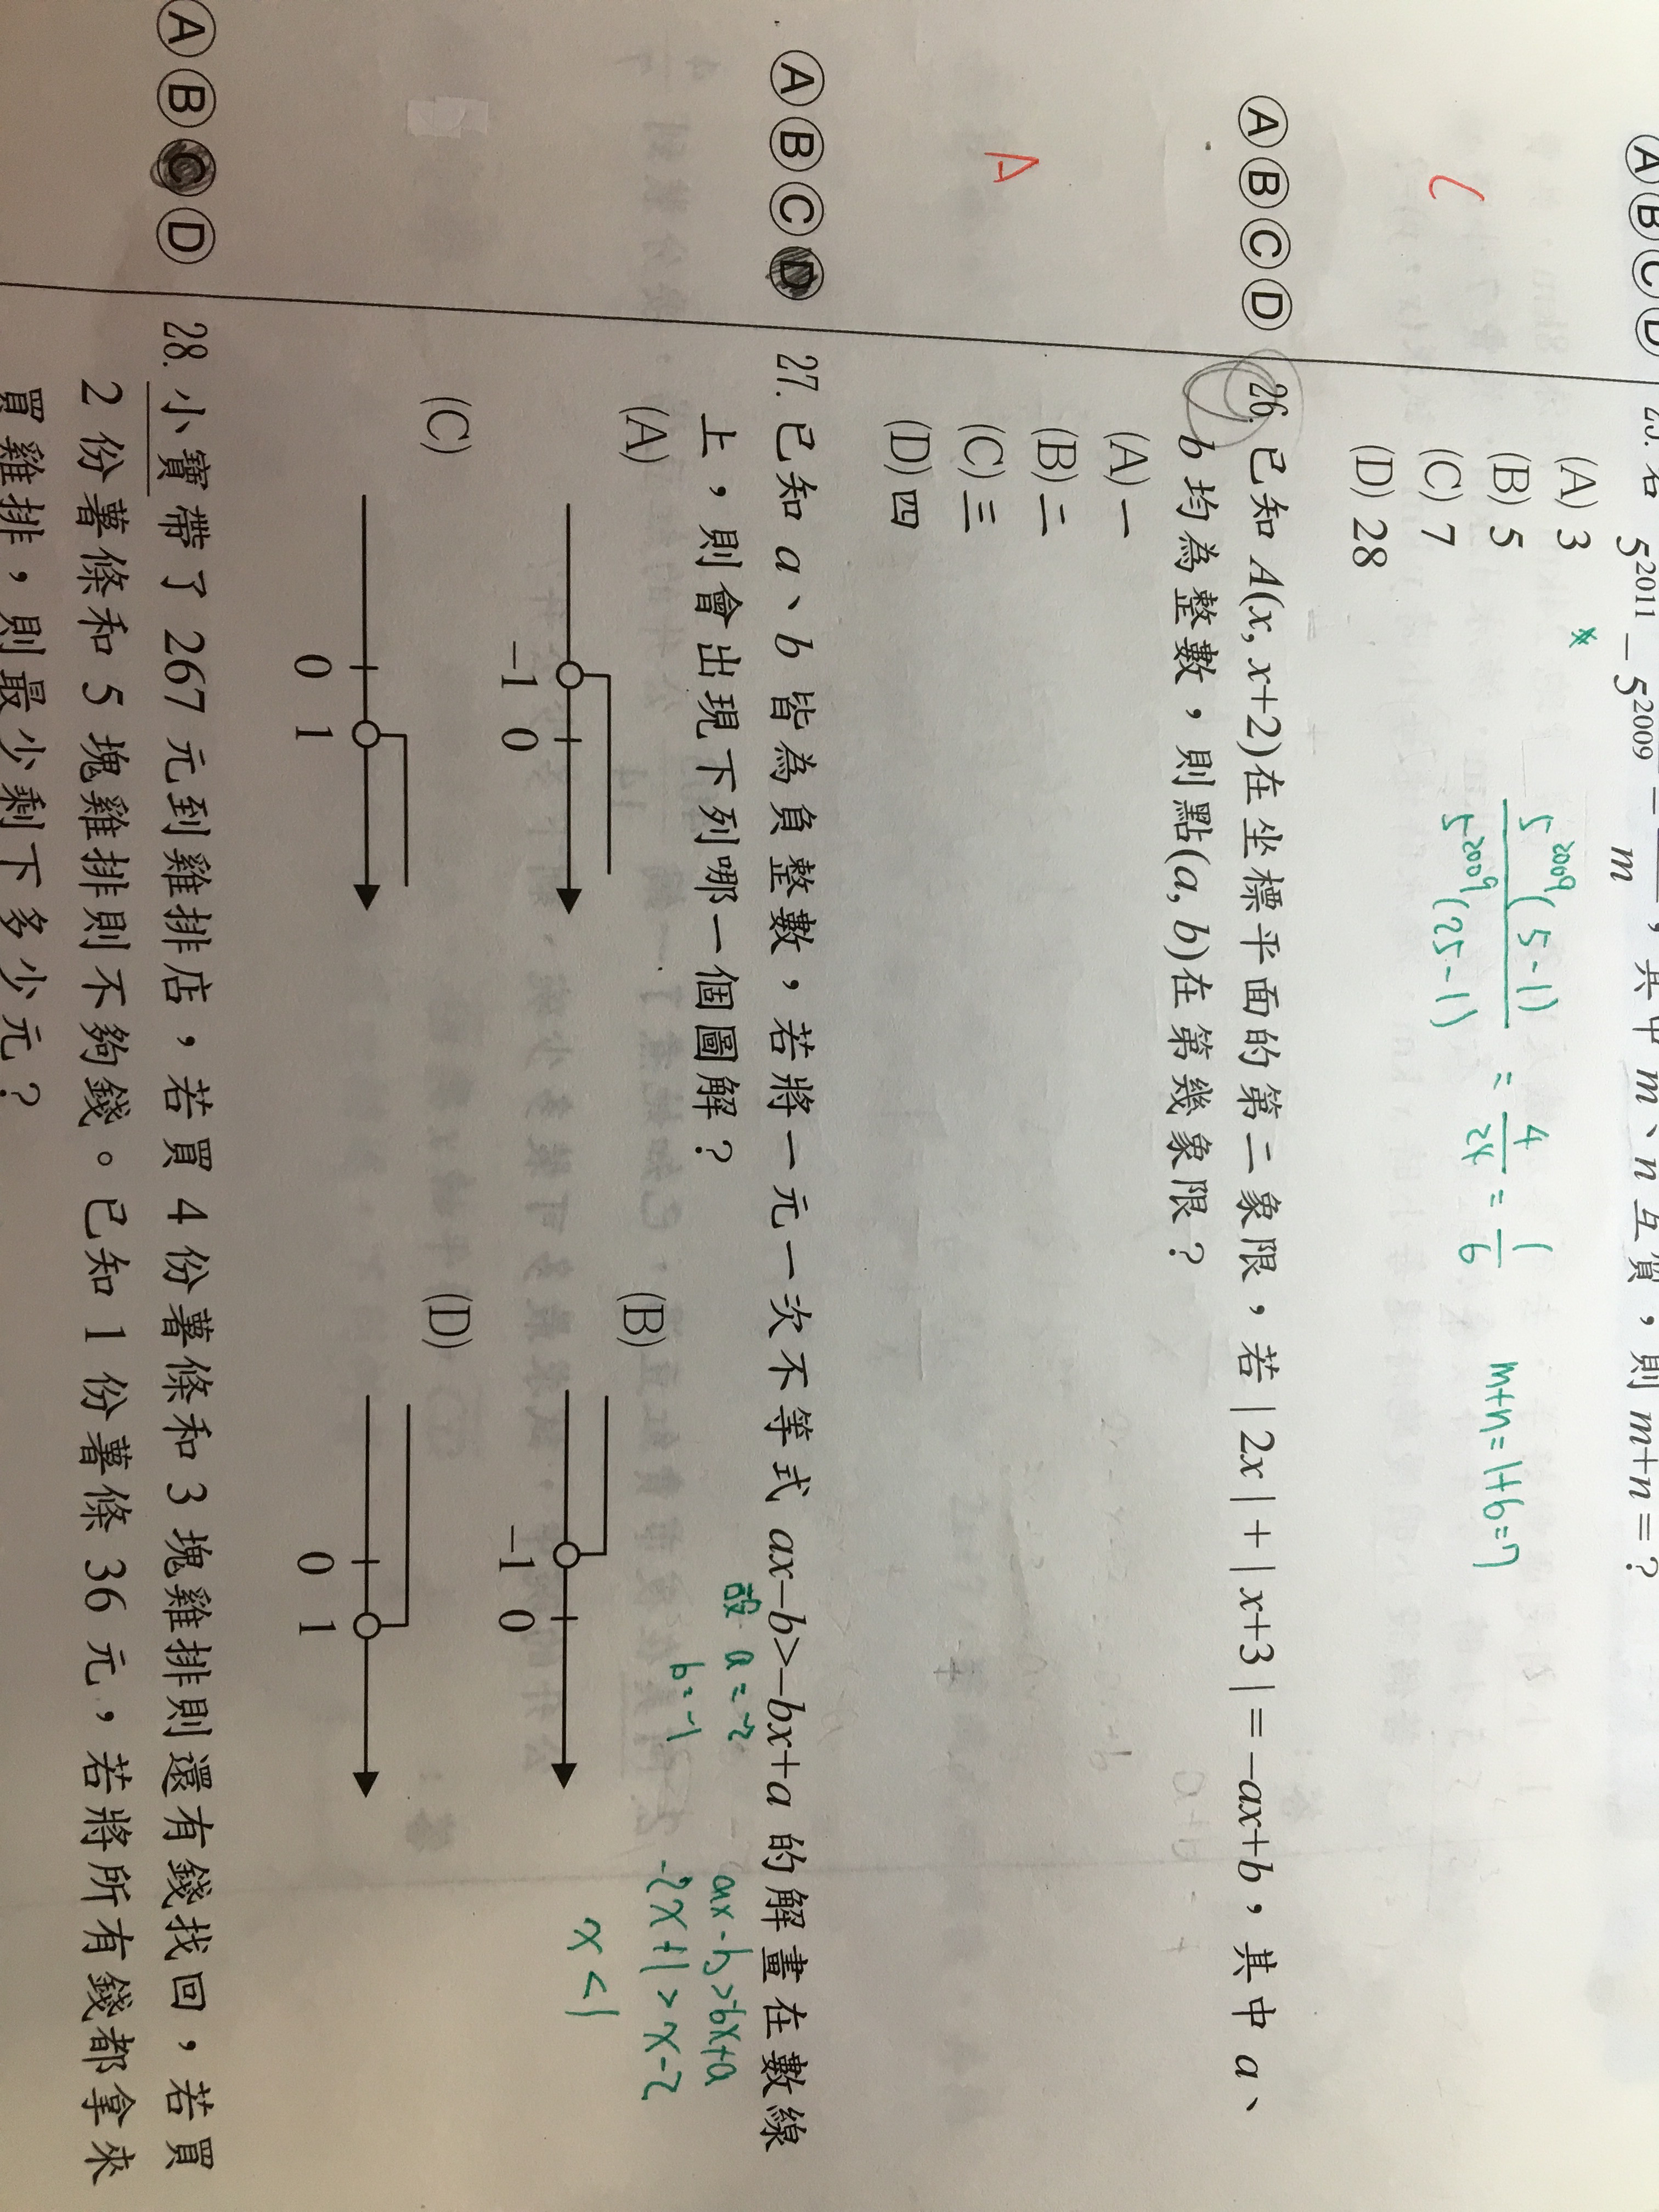 ⒶⒷⒸⒹ
25. 若
5²⁰¹¹－5²⁰⁰⁹＝
m
，其中 m、n 互質，則 m+n＝？
(A) 3
(B) 5
(C) 7
(D) 28
*
5²⁰⁰⁹(5-1)
5²⁰⁰⁹(25-1)
= 4/24 = 1/6
m+n=1+6=7
ⒶⒷⒸⒹ
26. 已知 A(x, x+2)在坐標平面的第二象限，若｜2x｜+｜x+3｜=－ax+b，其中 a、
b 均為整數，則點(a, b)在第幾象限？
(A) 一
(B) 二
(C) 三
(D) 四
A
ⒶⒷⒸⒹ
27. 已知 a、b 皆為負整數，若將一元一次不等式 ax－b>－bx+a 的解畫在數線
上，則會出現下列哪一個圖解？
設 a=-2
b=-1
ax-b>-bx+a
-2x+1>x-2
x<1
(A)
-1 0
(B)
-1 0
(C)
0 1
(D)
0 1
ⒶⒷⒸⒹ
28. 小寶帶了 267 元到雞排店，若買 4 份薯條和 3 塊雞排則還有錢找回，若買
2 份薯條和 5 塊雞排則不夠錢。已知 1 份薯條 36 元，若將所有錢都拿來
買雞排，則最少剩下多少元？